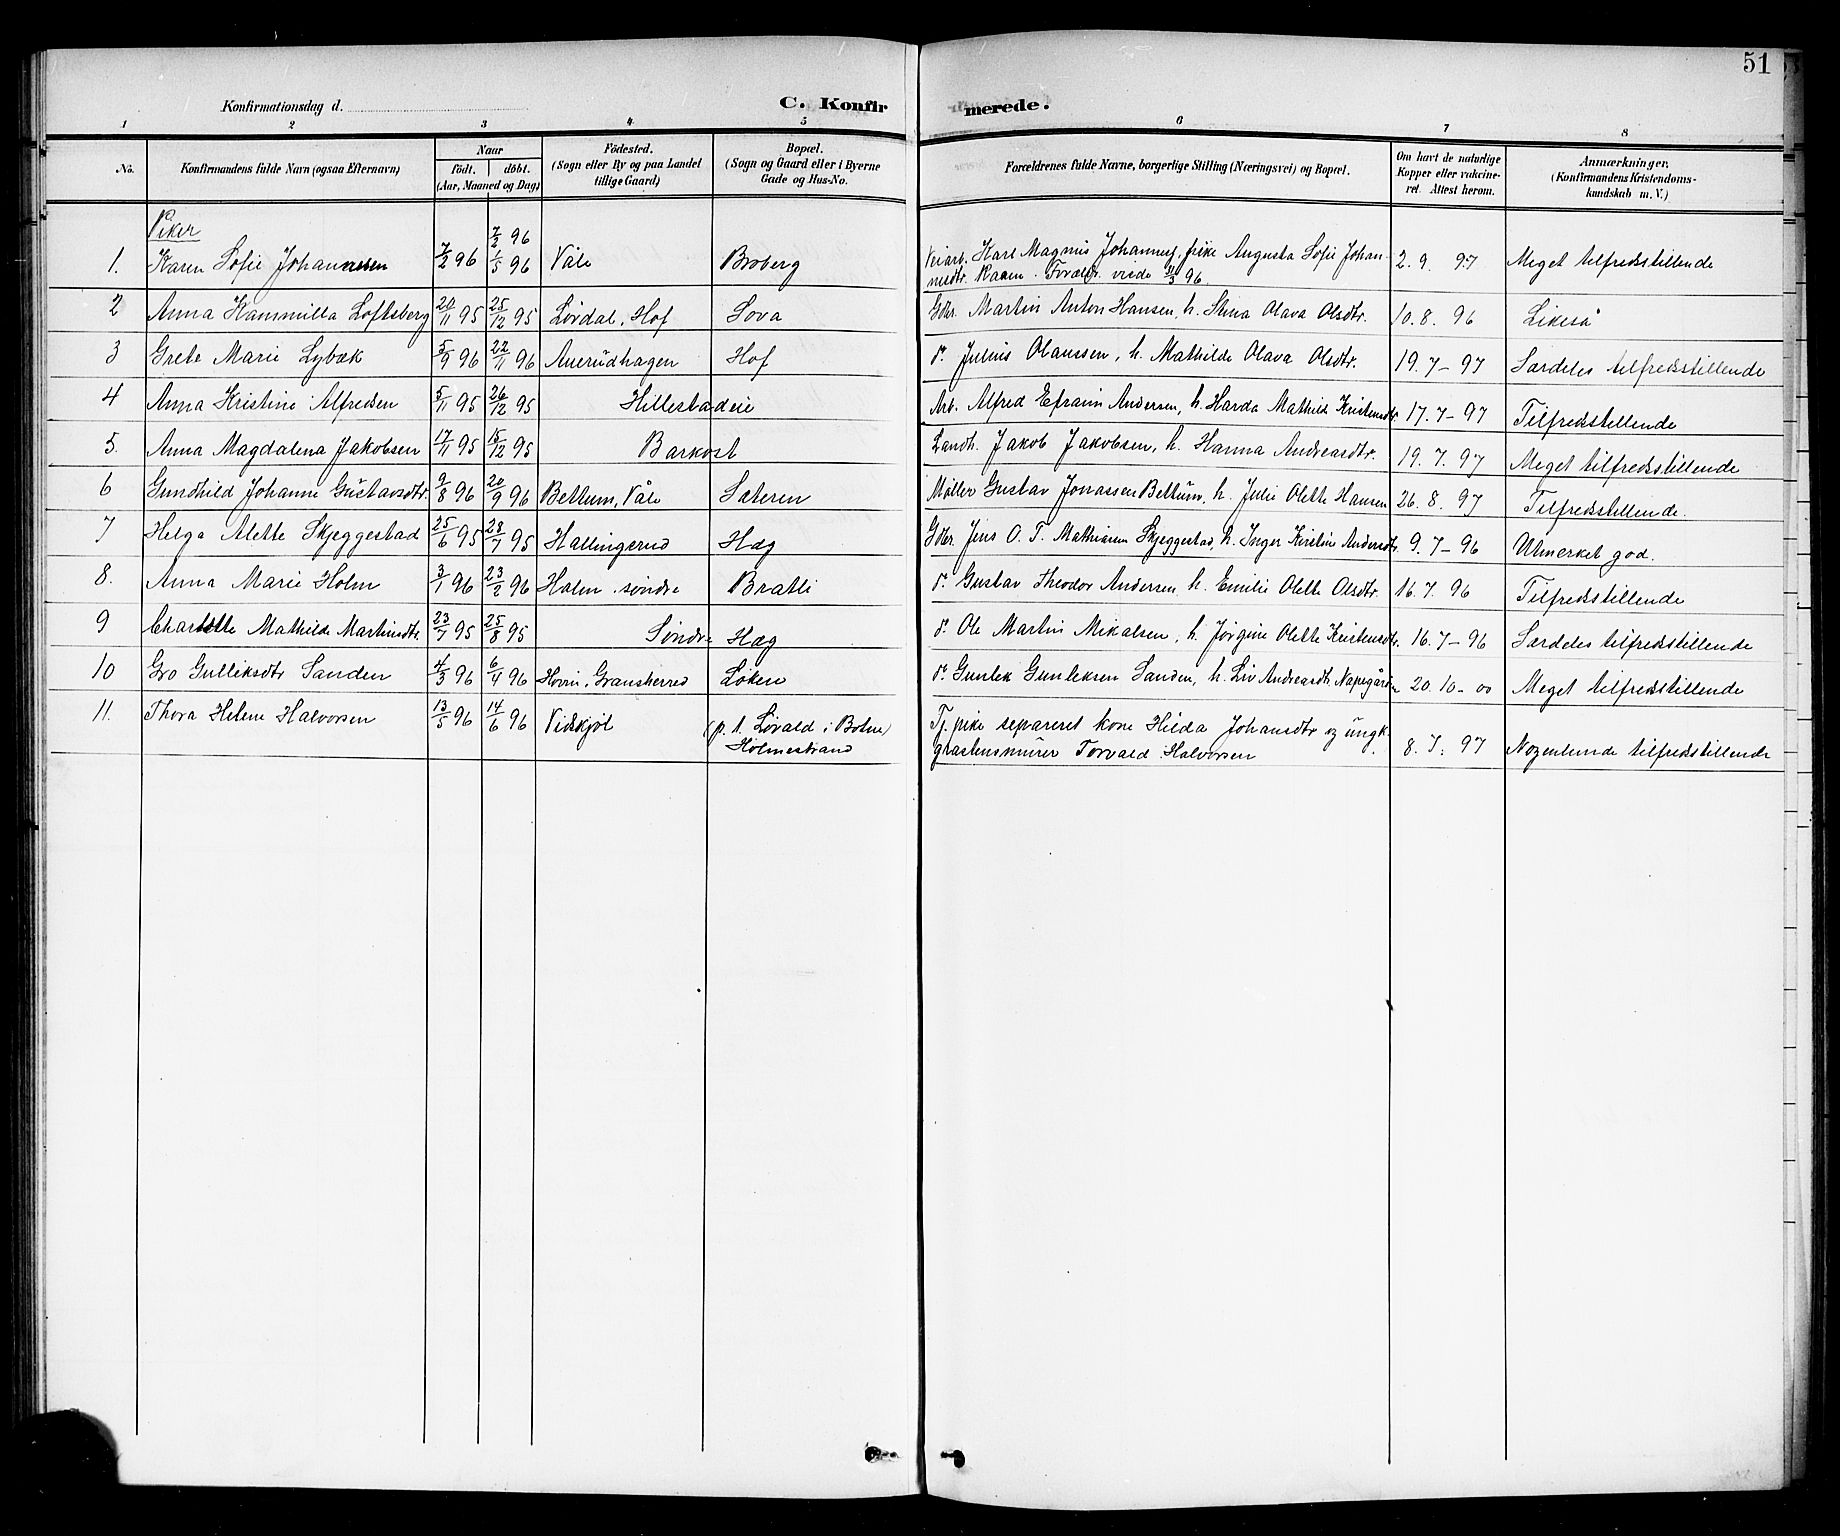 51
Konfirmationsdag d.
C. Konfirmerede.
1 2 3 4 5 6 7 8
No. Konfirmandens fulde Navn (ogsaa Efternavn) Naar födt. döbt. (Aar, Maaned og Dag) Födested. (Sogn eller By og paa Landet tillige Gaard) Bopæl. (Sogn og Gaard eller i Byerne Gade og Hus-No. Forældrenes fulde Navne, borgerlige Stilling (Næringsvei) og Bopæl. Om havt de naturlige Kopper eller vakcineret. Attest herom. Anmærkninger. (Konfirmandens Kristendomskundskab m. V.)
Piker
1. Karen Sofie Johannessen 7/2 96 7/2 96 1/5 96 Våle Broberg Veiarb. Karl Magnus Johannes, pike Augusta Sofie Johan-
nesdtr. Raaen. Forældr. viede 96 2. 9. 97 Meget tilfredsstillende
2 Anna Kammilla Loftsberg 20/11 95 25/12 95 Lørdal, Hof Sova Gbr. Martin Anton Hansen, h. Stina Olava Olsdtr. 10. 8. 96 Likeså
3 Grete Marie Lybæk 5/9 96 22/11 96 Auerudhagen Hof d. Julius Olaussen, h. Mathilde Olava Olsdtr. 19. 7 - 97 Særdeles tilfredsstillende
4 Anna Kristine Alfredsen 5/11 95 26/12 95 Hillestadeie Arb. Alfred Efraim Andersen, h. Harda Mathild Kristensdtr. 17. 7 - 97 Tilfredsstillende
5. Anna Magdalena Jakobsen 17/11 95 15/12 95 Barkost Landh. Jakob Jakobsen, h. Hanna Andreasdtr. 19. 7. 97 Meget tilfredsstillende
6 Gundhild Johanne Gustavsdtr. 9/8 96 20/9 96 Bettum, Våle Sæteren Møller Gustav Jonassen Bettum, h. Julie Olette Hansen 26. 8. 97 Tilfredsstillende.
7 Helga Alette Skjeggestad 25/6 95 28/7 95 Hallingerud Hæg Gbr. Jens O. T. Mathiasen Skjeggestad, h. Inger Kirstine Andersdtr. 9. 7 - 96 Utmerket god.
8. Anna Marie Holm 3/1 96 23/2 96 Holm søndre Bratli d. Gustav Theodor Andersen, h. Emilie Olette Olsdtr. 16. 7. 96 Tilfredsstillende
9 Charlotte Mathilde Martinsdtr. 23/7 95 25/8 95 Søndre Hæg d. Ole Martin Mikalsen, h. Jørgine Olette Kristensdtr. 16. 7 - 96 Særdeles tilfredsstillende
10 Gro Gulliksdtr Sanden 4/3 96 6/4 96 Hovin, Gransherred Løken d. Gunlek Gunleksen Sanden, h. Liv Andreasdtr. Napegården 20. 10 - 00 Meget tilfredsstillende
11. Thora Helene Halvorsen 13/5 96 14/6 96 Vidskjøl (p. t. Løvald i Botne)
Holmestrand Tj. pike separeret kone Hilda Johansdtr og ungk.
gråstensmurer Torvald Halvorsen 8. 7. 97 Nogenlunde tilfredsstillende